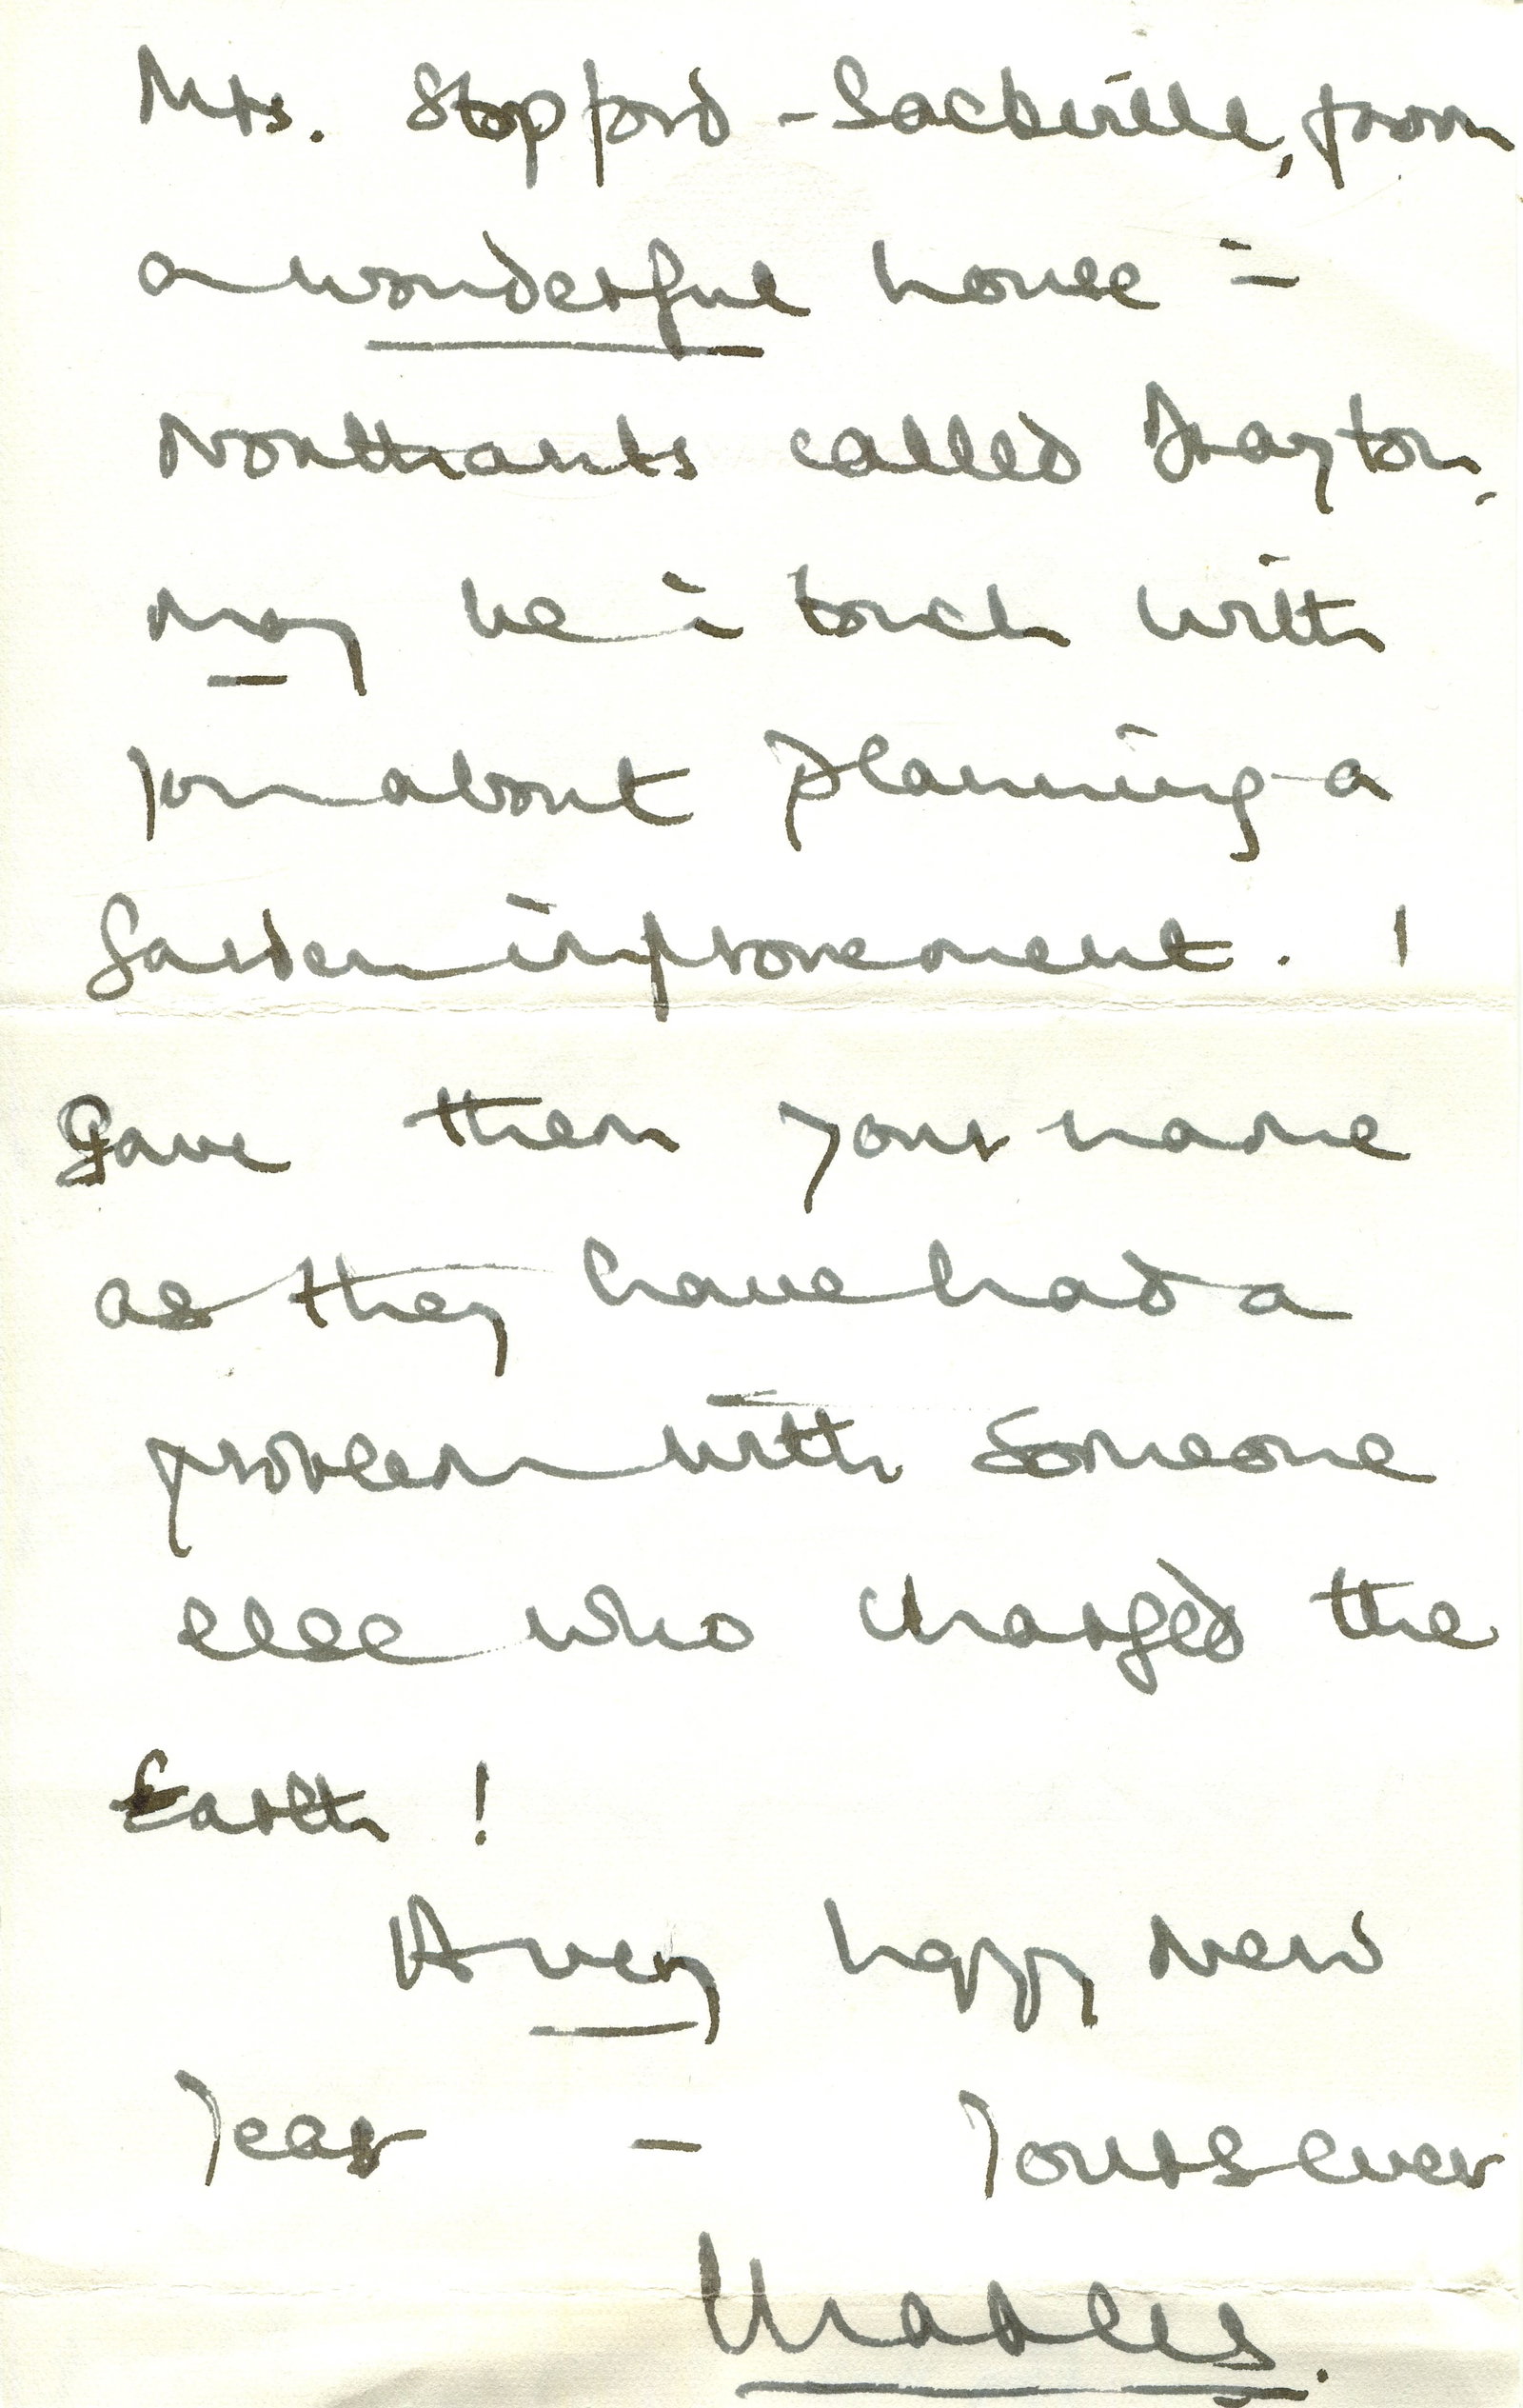 Mrs. Stopford-Sackville, from
a wonderful house in
Northants called Drayton,
may be in touch with
you about planning a
Garden improvement. I
Gave them your name
as they have had a
problem with someone
else who charged the
Earth!
A very happy New
Year - Yours ever
Charles.